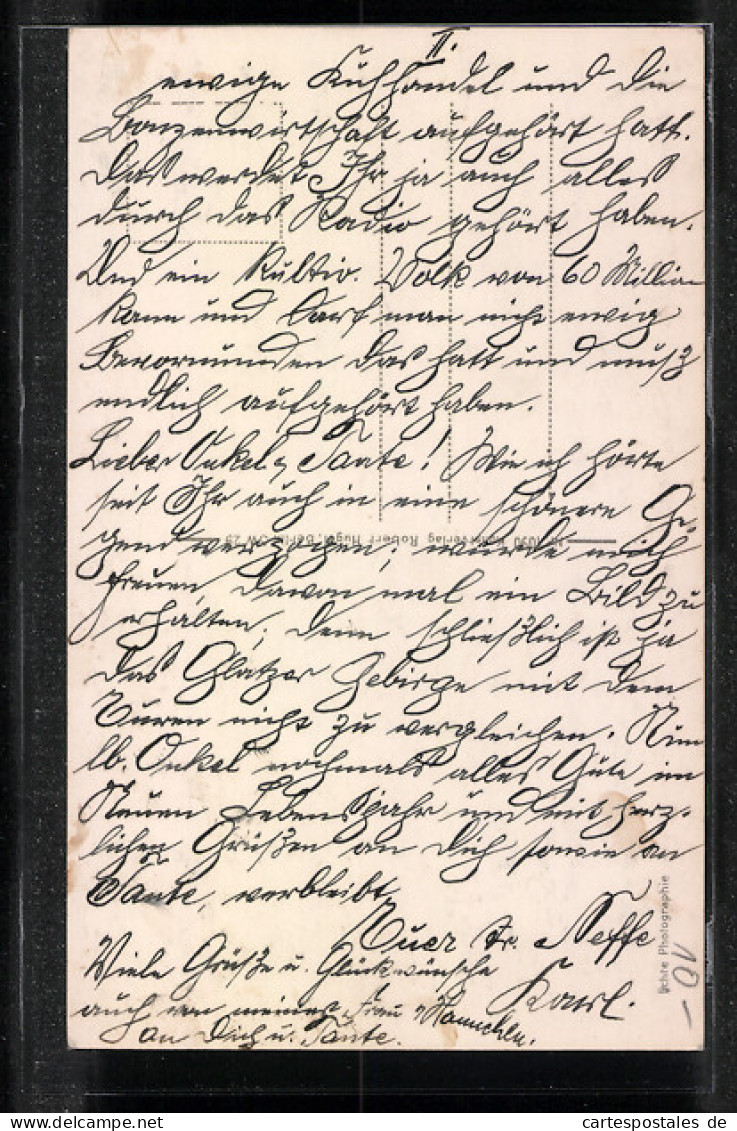 II.
ewige Kuhhandel und die
Bonzenwirtschaft aufgehört hatt.
Das werdet Ihr ja auch alles
durch das Radio gehört haben.
Und ein Kultiv. Volk von 60 Million
kann und darf man nicht ewig
Bevormunden das hatt und muß
endlich aufgehört haben.
Lieber Onkel u. Tante! Wie ich hörte
seit Ihr auch in eine schönere Ge-
gend verzogen; würde mich
freuen, davon mal ein Bild zu
erhalten; denn schließlich ist ja
das Glatzer Gebirge mit dem
Euren nicht zu vergleichen. Nun
lb. Onkel nochmals alles Gute im
Neuen Lebensjahr und mit herz-
lichen Grüßen an Dich sowie an
Tante, verbleibt
Euer tr. Neffe
Karl.
Viele Grüße u. Glückwünsche
auch von meiner Frau u. Hannchen
an Dich u. Tante.
verlag Robert
Echte Photographie
10-
cartespostales de